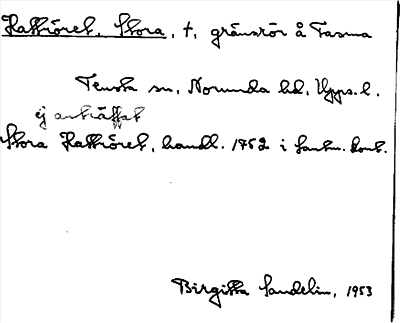 Kattröret, Stora, t, gränsrör å Tasma
Tensta sn, Norunda hd, Upps. l.
ej anträffat
Stora Kattröret, handl. 1752 i Lantm. kont.
Birgitta Sandelin, 1953